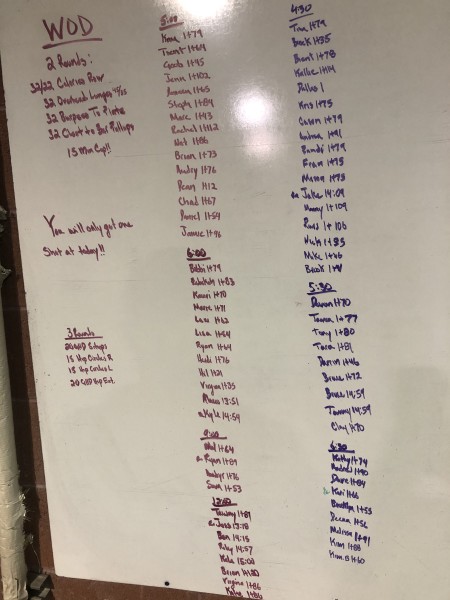 WOD
2 Rounds:
32/22 Calorie Row
32 Overhead Lunges
32 Burpees To Plate
32 Chest to Bar Pullups
15 Min Cap!!
You will only get one
Shot at today!!
3 Rounds
20 GHD Situps
15 Hip Circles R
15 Hip Circles L
20 GHD Hip Ext.
5:00
1+79
Trent 1+64
1+45
Jenn 1+102
1+65
Steph 1+84
Marc 1+43
Rachel 1+112
Nat 1+86
Brian 1+73
Audry 1+76
Ryan 1+12
Chad 1+67
Daniel 1+59
Jamie 1+96
6:00
Bobbi 1+79
1+83
1+70
1+71
1+62
Lisa 1+64
Ryan 1+64
Heidi 1+76
Hil 1+21
Virginia 1+35
13:51
Kyle 14:59
9:00
1+64
Ryan 1+89
1+76
Sam 1+53
12:00
Tommy 1+89
Jess 13:18
Ben 14:15
Riley 14:57
Kyle 15:00
Brian
Virginia 1+86
4:30
Tina 1+79
Brock 1+35
Brent 1+78
Kellee 1+114
Dallas 1
Kris 1+75
Casen 1+79
Andrea 1+91
Randi 1+79
Fran 1+75
1+73
Jake 14:09
Manny 1+109
1+106
Nick 1+55
Mike 1+46
Brook
5:30
Devon 1+70
1+77
Tony 1+80
Tara 1+81
Darrin 1+46
Bruce 1+72
14:59
Tommy 14:59
Clay 1+70
6:30
Kathy 1+74
1+90
Dave 1+84
Kari 1+66
Brooklyn 1+53
Deena 1+56
Melissa 1+91
Kim 1+88
Kim B 1+60